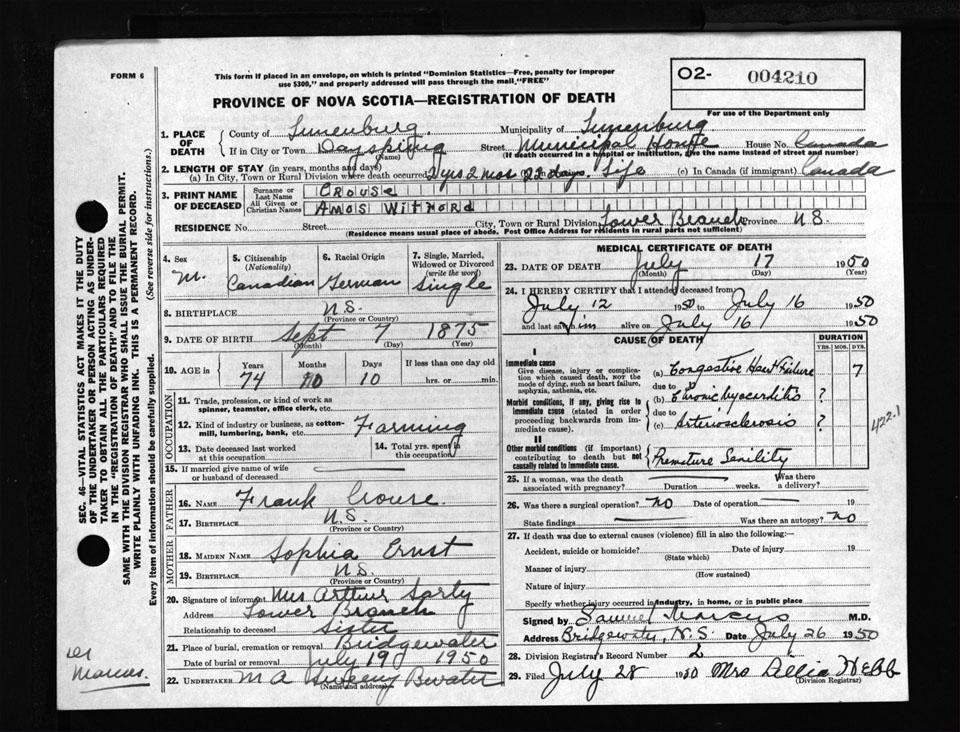 FORM 6
This form if placed in an envelope, on which is printed "Dominion Statistics—Free, penalty for improper
use $300," and properly addressed will pass through the mail "FREE"
O2- 004210
For use of the Department only
PROVINCE OF NOVA SCOTIA—REGISTRATION OF DEATH
1. PLACE OF DEATH County of Lunenburg. Municipality of Lunenburg
If in City or Town Dayspring Street Municipal House House No. Canada
(Name) (If death occurred in a hospital or institution, give the name instead of street and number)
2. LENGTH OF STAY (in years, months and days)
(a) In City, Town or Rural Division where death occurred 2 yrs 2 mos 22 days. Life (c) In Canada (if immigrant) Canada
3. PRINT NAME OF DECEASED Surname or Last Name Crouse
All Given or Christian Names Amos Witford
RESIDENCE No. Street City, Town or Rural Division Lower Branch Province N S
(Residence means usual place of abode. Post Office Address for residents in rural parts not sufficient)
4. Sex M.
5. Citizenship (Nationality) Canadian
6. Racial Origin German
7. Single, Married, Widowed or Divorced (write the word) Single
8. BIRTHPLACE N.S.
(Province or Country)
9. DATE OF BIRTH Sept 7 1875
(Month) (Day) (Year)
10. AGE in Years Months Days If less than one day old
74 10 10 hrs. or min.
OCCUPATION
11. Trade, profession, or kind of work as
spinner, teamster, office clerk, etc.
12. Kind of industry or business, as cotton-
mill, lumbering, bank, etc. Farming
13. Date deceased last worked
at this occupation
14. Total yrs. spent in
this occupation
15. If married give name of wife
or husband of deceased
FATHER
16. NAME Frank Crouse.
17. BIRTHPLACE N.S.
(Province or Country)
MOTHER
18. MAIDEN NAME Sophia Ernst
19. BIRTHPLACE N.S.
(Province or Country)
20. Signature of informant Mrs Arthur Sarty
Address Lower Branch
Relationship to deceased Sister
21. Place of burial, cremation or removal Bridgewater
Date of burial or removal July 19 1950
22. UNDERTAKER M A Sweeny Bwater
(Name and address)
MEDICAL CERTIFICATE OF DEATH
23. DATE OF DEATH July 17 1950
(Month) (Day) (Year)
24. I HEREBY CERTIFY that I attended deceased from
July 12 1950 to July 16 1950
and last saw him alive on July 16 1950
CAUSE OF DEATH DURATION
YRS. MOS. DYS.
I
Immediate cause
Give disease, injury or complica-
tion which caused death, not the
mode of dying, such as heart failure,
asphyxia, asthenia, etc.
(a) Congestive Heart Failure 7
due to
Morbid conditions, if any, giving rise to
immediate cause (stated in order
proceeding backwards from im-
mediate cause).
(b) Chronic Myocarditis ?
due to
(c) Arteriosclerosis ?
422.1
II
Other morbid conditions (if important)
contributing to death but not
causally related to immediate cause.
Premature Senility
25. If a woman, was the death
associated with pregnancy? Duration weeks. Was there
a delivery?
26. Was there a surgical operation? No Date of operation 19
State findings Was there an autopsy? No
27. If death was due to external causes (violence) fill in also the following:—
Accident, suicide or homicide? Date of injury 19
(State which)
Manner of injury
(How sustained)
Nature of injury
Specify whether injury occurred in industry, in home, or in public place
Signed by Samuel Marcus M.D.
Address Bridgewater, N.S. Date July 26 1950
28. Division Registrar's Record Number 2
29. Filed July 28 1950 Mrs Dellia Webb
(Division Registrar)
SEC. 46—VITAL STATISTICS ACT MAKES IT THE DUTY
OF THE UNDERTAKER OR PERSON ACTING AS UNDER-
TAKER TO OBTAIN ALL THE PARTICULARS REQUIRED
IN THE "REGISTRATION OF DEATH" AND TO FILE THE
SAME WITH THE DIVISION REGISTRAR WHO SHALL ISSUE THE BURIAL PERMIT.
WRITE PLAINLY WITH UNFADING INK. THIS IS A PERMANENT RECORD.
Every item of information should be carefully supplied. (See reverse side for instructions.)
Marcus.